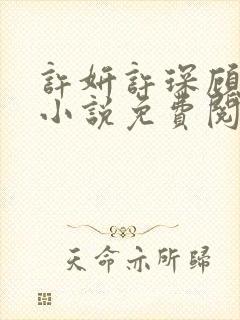 許妍許琛顧
小說免費閱
天命亦所歸